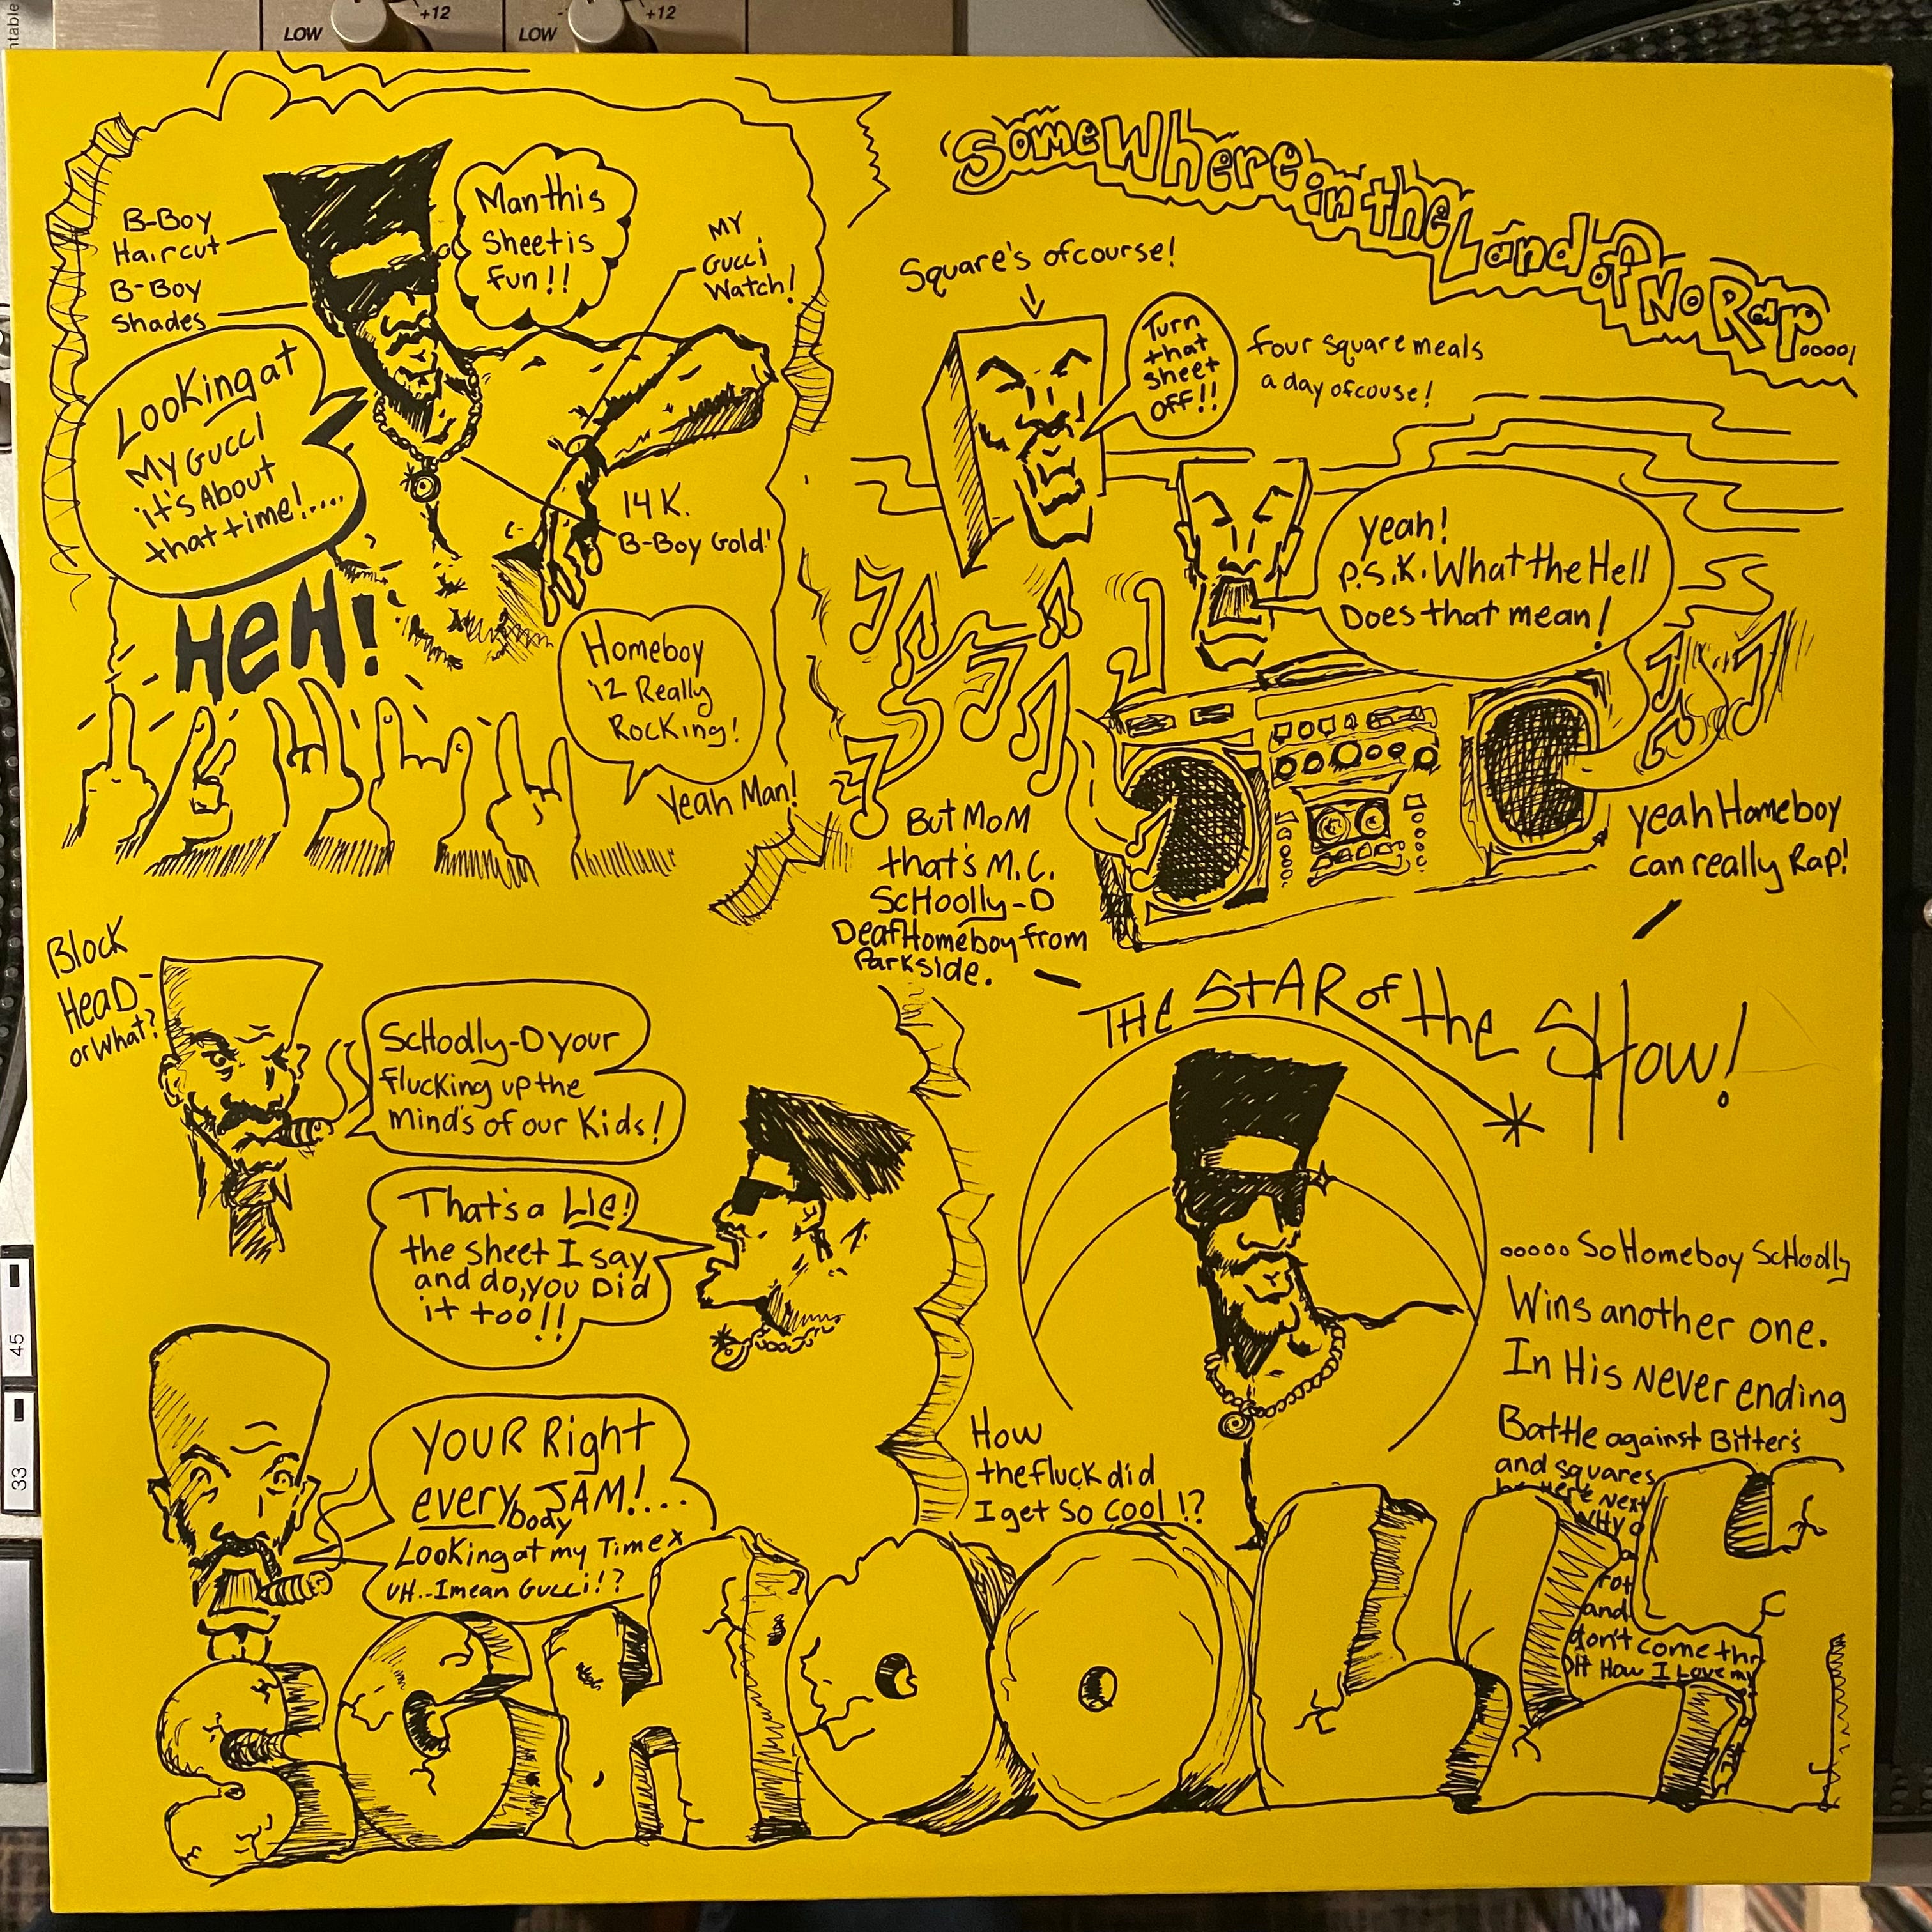 LOW
+12
LOW
+12
B-Boy
Haircut
B-Boy
Shades
Man this
Sheet is
fun!!
MY
Gucci
Watch!
Looking at
My Gucci
it's About
that time!....
14 K.
B-Boy Gold!
HeH!
Homeboy
iz Really
Rocking!
Yeah Man!
SomeWhere in the Land of No Rap
Square's ofcourse!
Turn
that
sheet
OFF!!
four square meals
a day ofcouse!
yeah!
P.S.K. What the Hell
Does that mean!
But MoM
that's M.C.
ScHoolly-D
Deaf Homeboy from
Parkside.
yeah Homeboy
can really Rap!
Block
HeaD-
or What?
ScHoolly-D your
flucking up the
mind's of our Kids!
That's a Lie!
the sheet I say
and do, you Did
it too!!
YOUR Right
everybody JAM!...
Looking at my Timex
UH..I mean Gucci!?
THe STAR of the SHow!
How
the fluck did
I get so cool!?
..... So Homeboy ScHoolly
Wins another one.
In His Never ending
Battle against Bitter's
and squares
be Here Next
and
don't come thr
How I Love my
SCHOOLLY
45
33